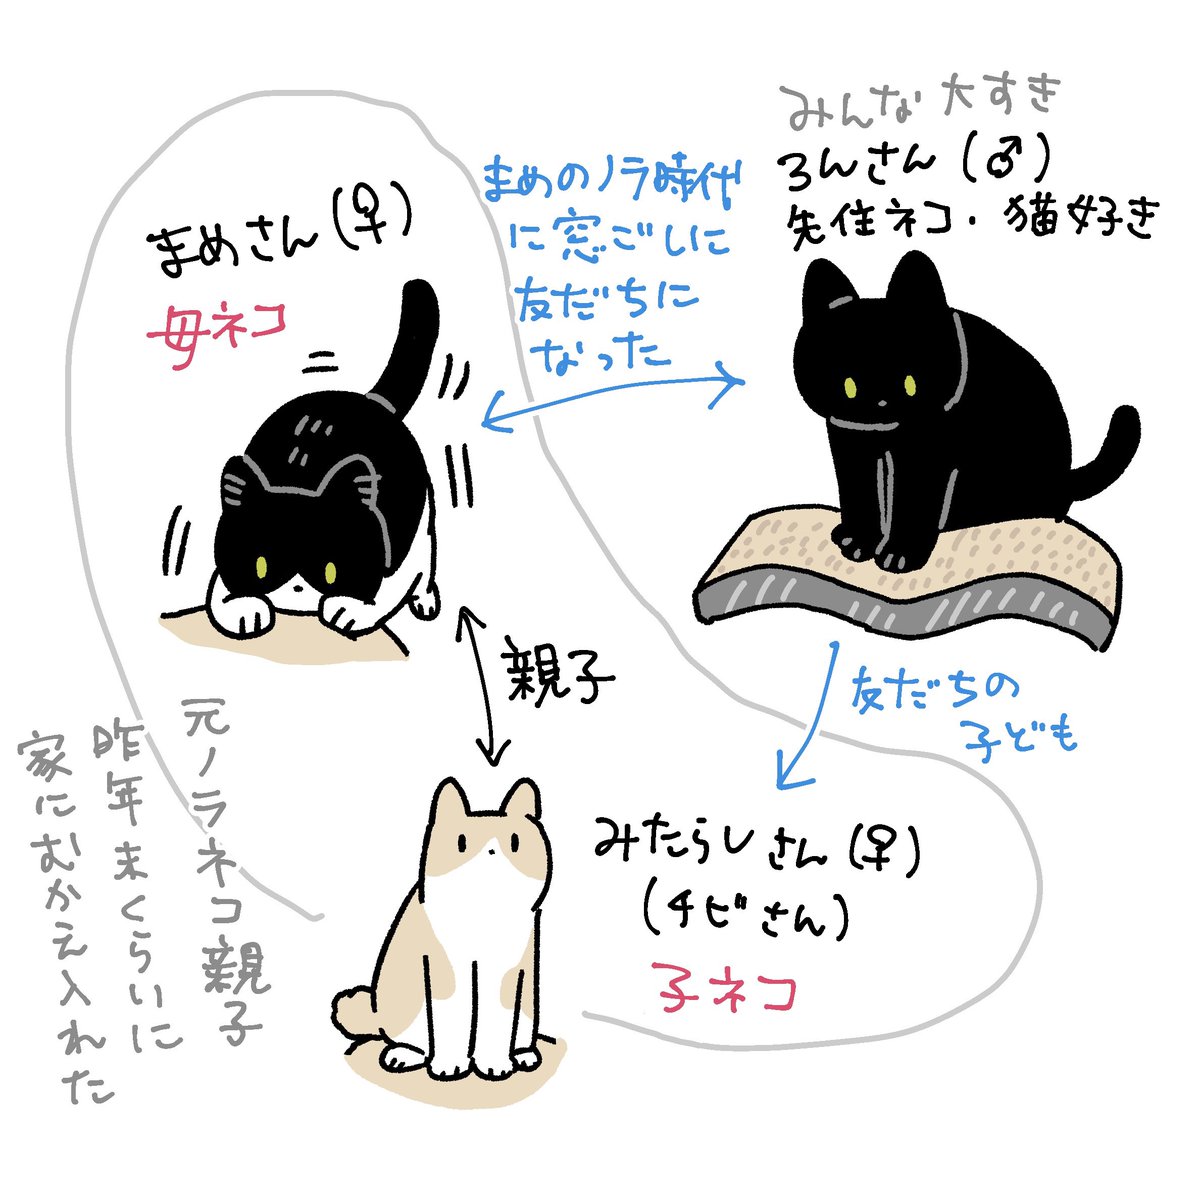 みんな大すき
ろんさん(♂)
先住ネコ・猫好き
まめのノラ時代
に窓ごしに
友だちに
なった
まめさん(♀)
母ネコ
親子
友だちの
子ども
みたらしさん(♀)
(チビさん)
子ネコ
元ノラネコ親子
昨年末くらいに
家にむかえ入れた